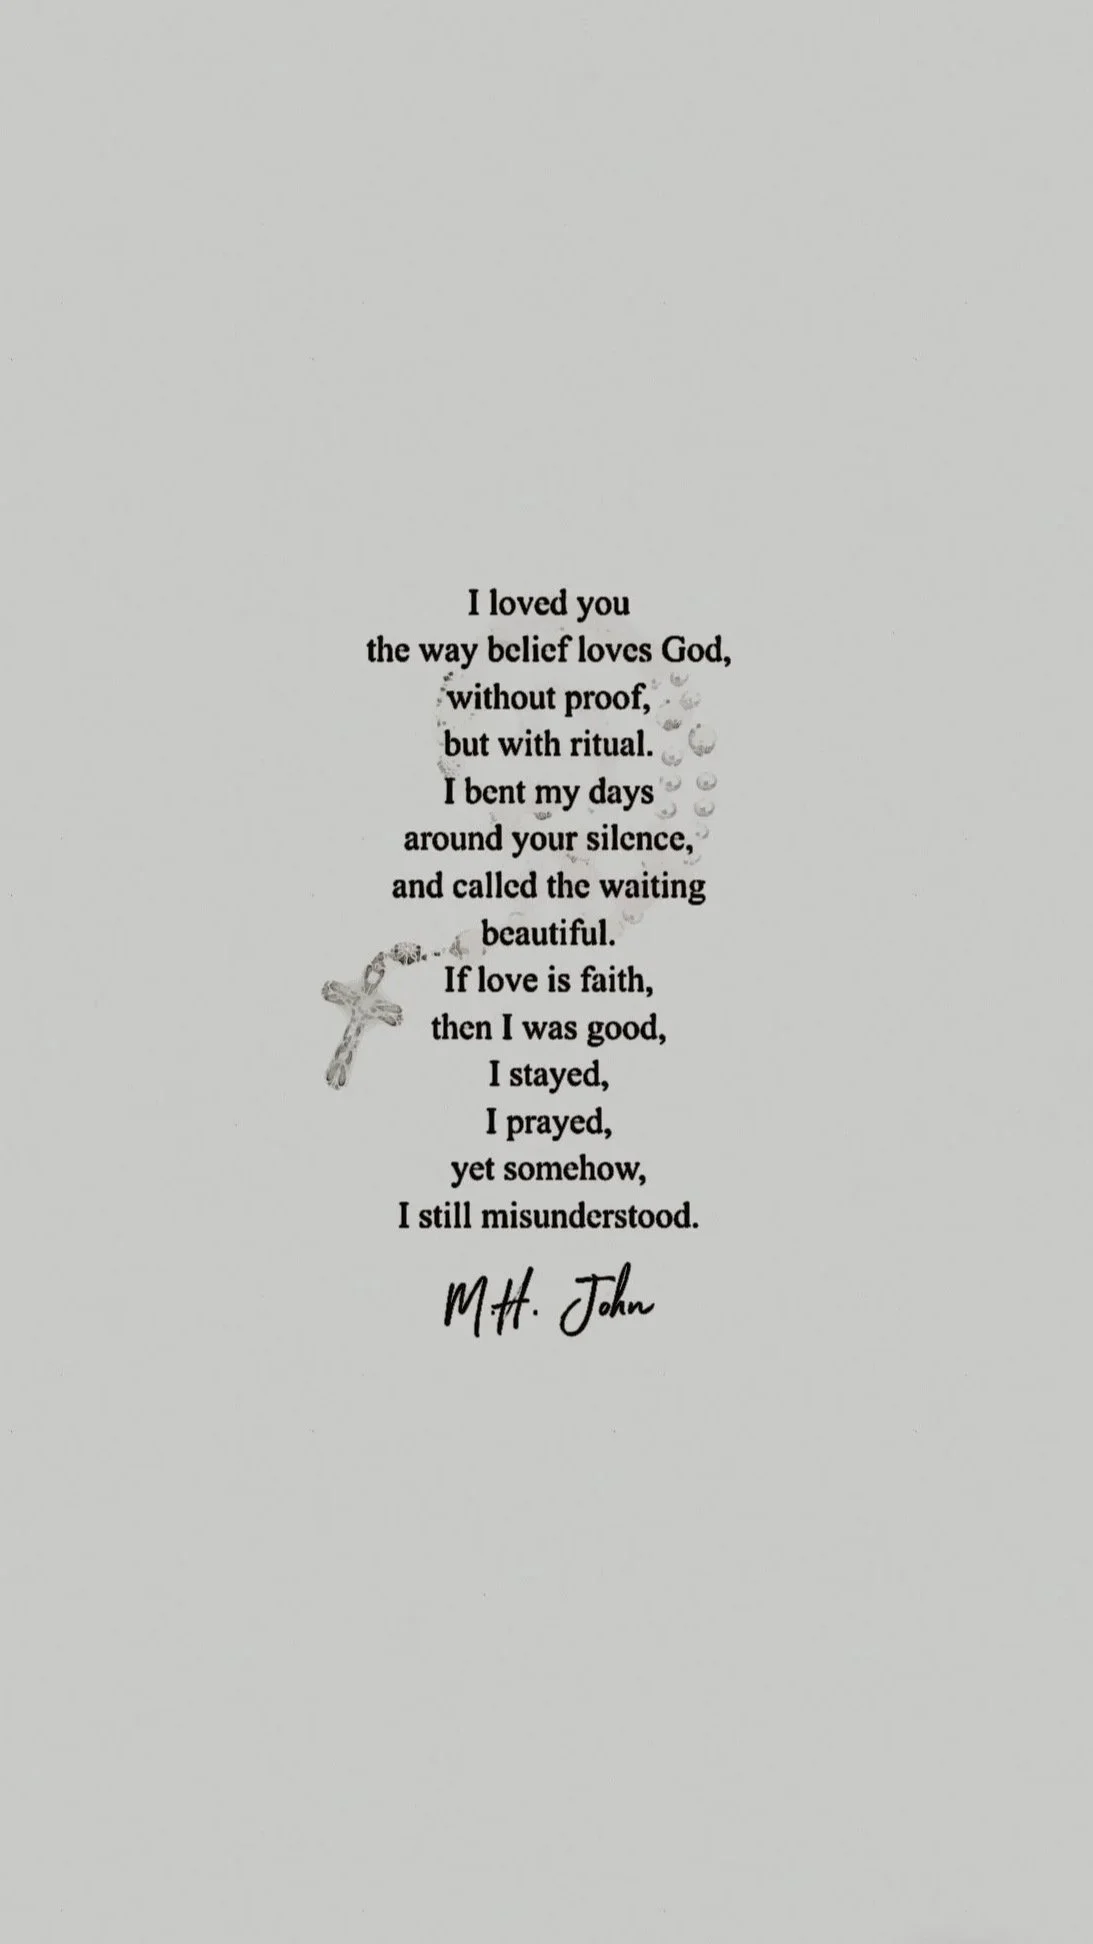 I loved you
the way belief loves God,
without proof,
but with ritual.
I bent my days
around your silence,
and called the waiting
beautiful.
If love is faith,
then I was good,
I stayed,
I prayed,
yet somehow,
I still misunderstood.
M.H. John